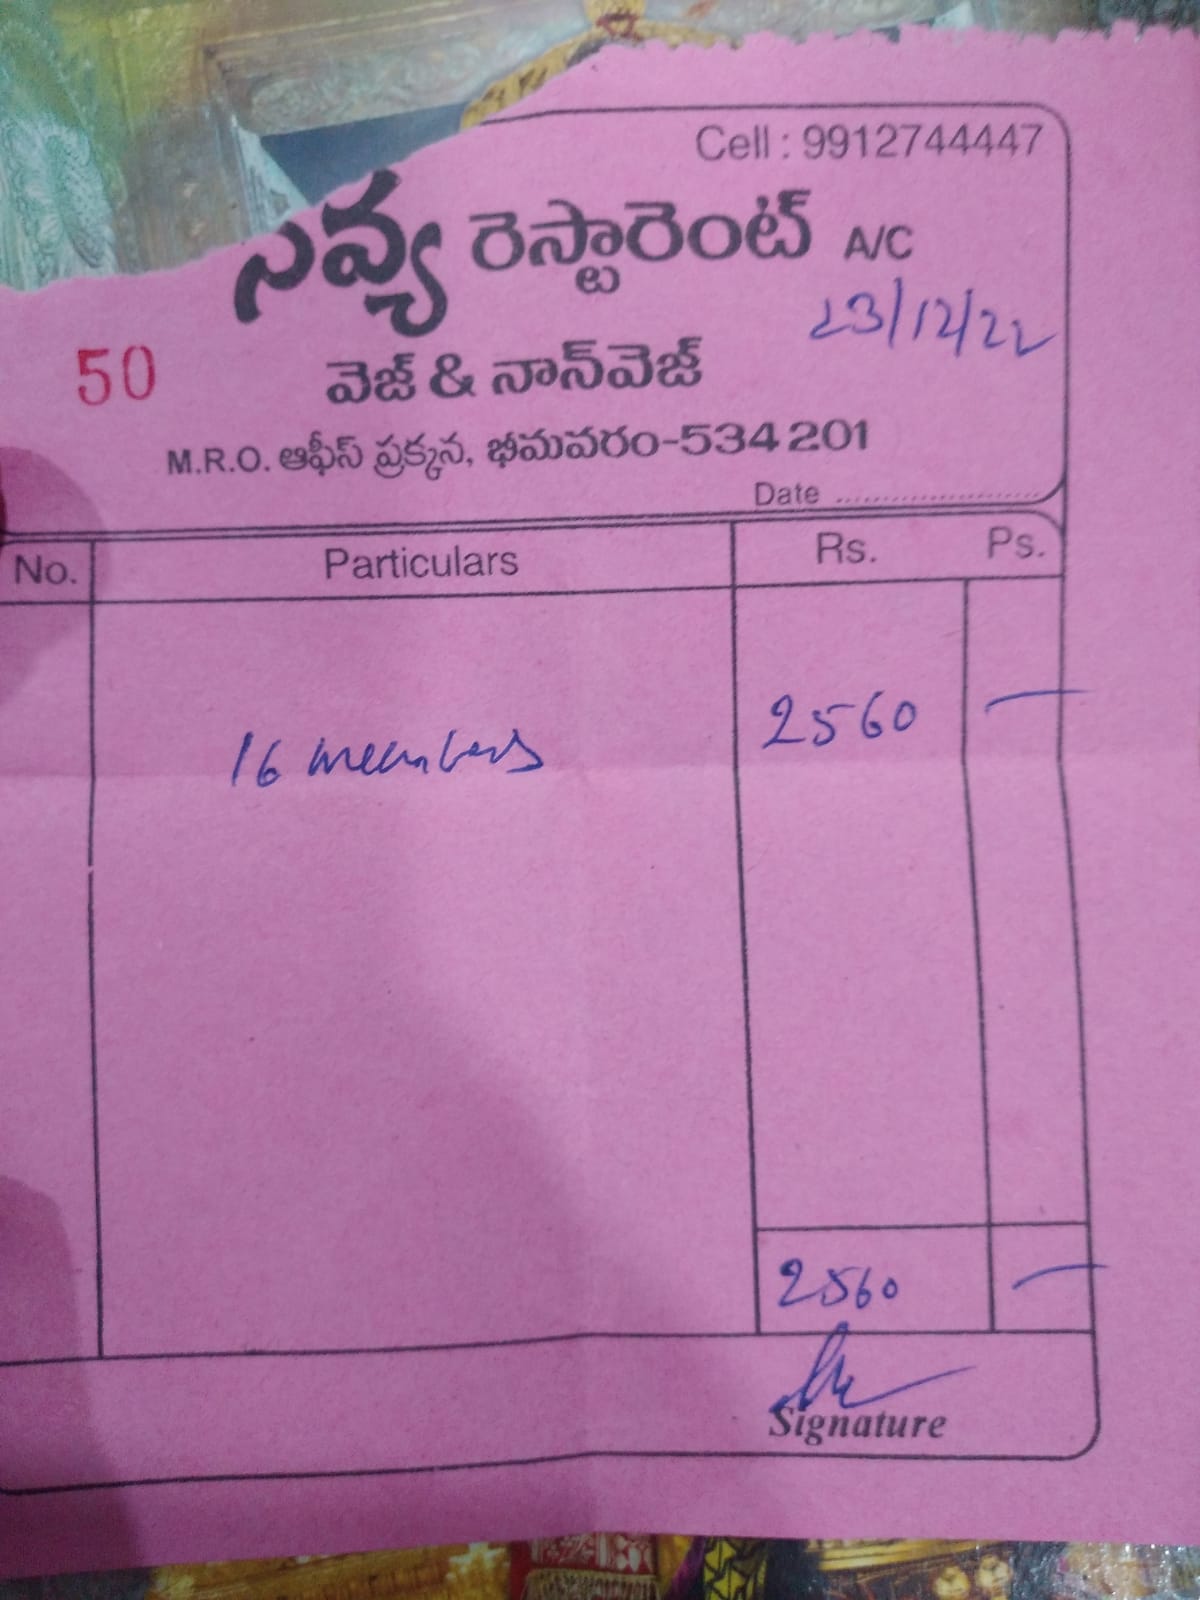 Cell : 9912744447
నవ్య రెస్టారెంట్ A/C
23/12/22
50
వెజ్ & నాన్‌వెజ్
M.R.O. ఆఫీస్ ప్రక్కన, భీమవరం-534 201
Date ........................
No. Particulars Rs. Ps.
16 members 2560 —
2560 —
Signature